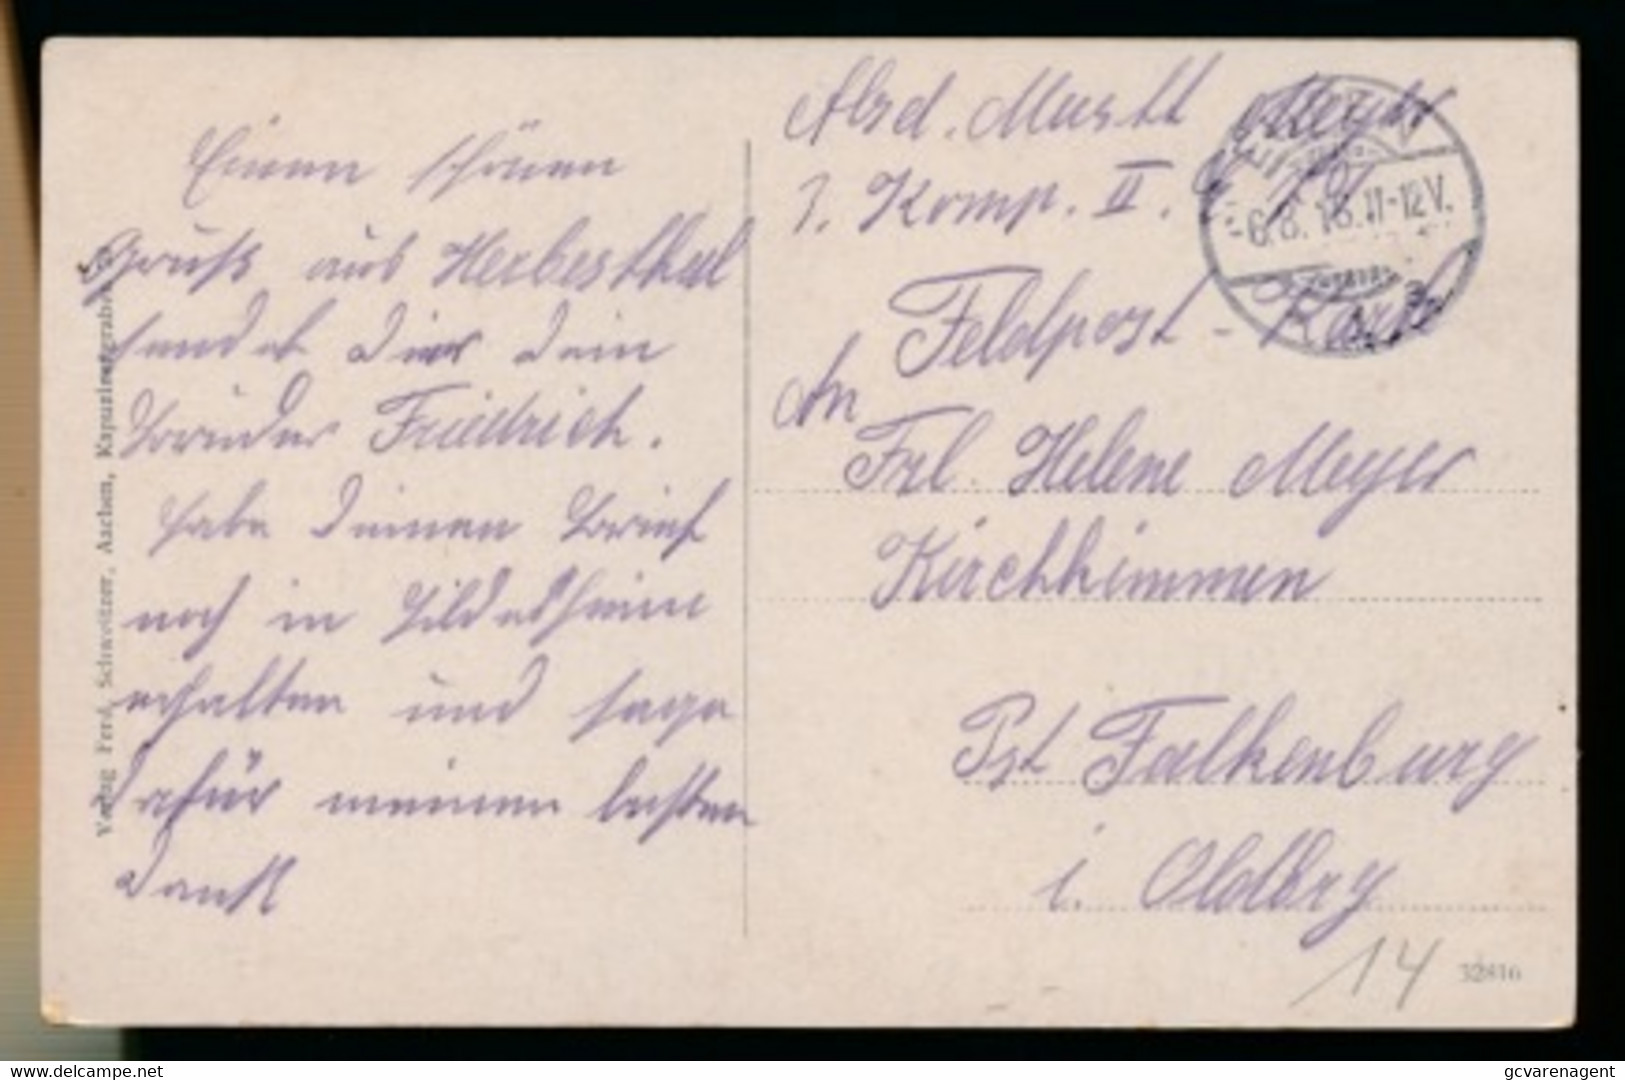 Einen schönen
Gruß aus Herbesthal
sendet Dir Dein
Bruder Friedrich.
habe Deinen Brief
noch in Hildesheim
erhalten und sage
dafür meinen besten
Dank
Verlag Ferd. Schweitzer, Aachen, Kapuzinergraben
Absd. Muskt Meyer
Komp. II.
-6.8.16.11-12V.
Feldpost-Karte
An
Frl. Helene Meyer
Kirchkimmen
Pst Falkenburg
i. Oldbrg
14
32816
www.delcampe.net
gcvarenagent